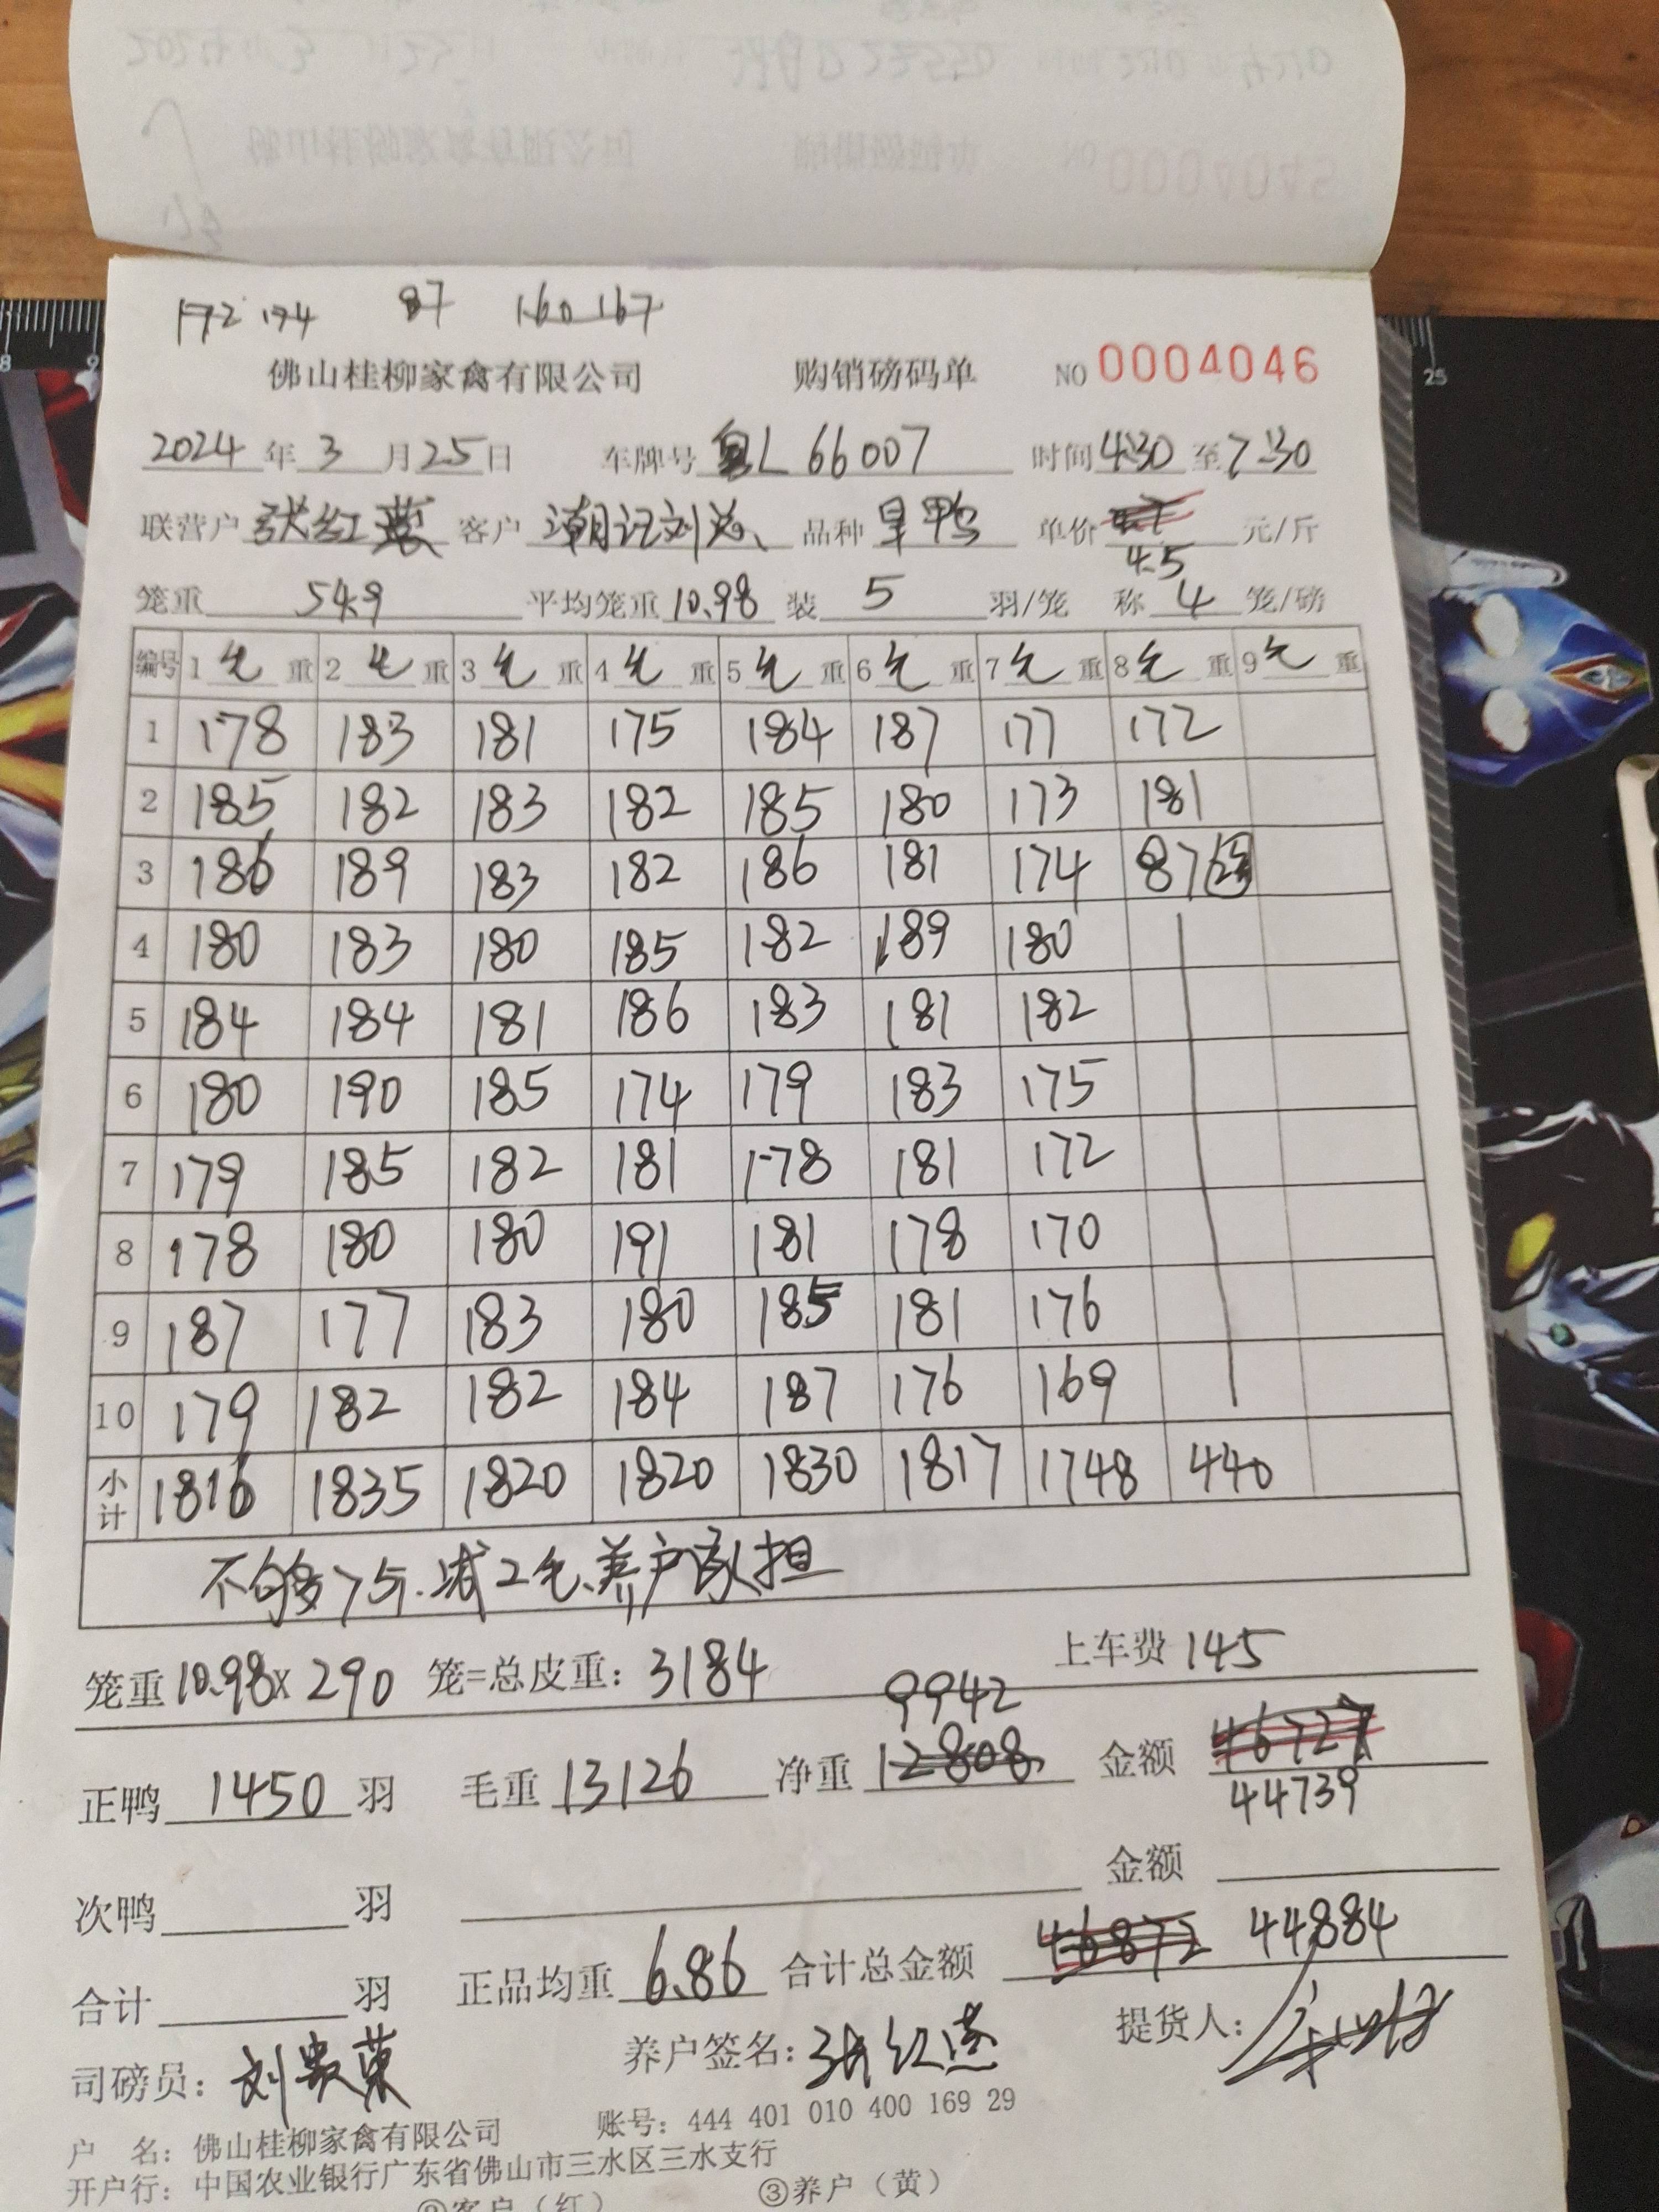 172 174 87 160 167
佛山桂柳家禽有限公司 购销磅码单 NO 0004046
2024 年 3 月 25 日 车牌号 粤L 66007 时间 4:30 至 7:30
联营户 张红燕 客户 潮记刘总 品种 旱鸭 单价 4.5 元/斤
笼重 54.9 平均笼重 10.98 装 5 羽/笼 称 4 笼/磅
编号 1 毛 重 2 毛 重 3 毛 重 4 毛 重 5 毛 重 6 毛 重 7 毛 重 8 毛 重 9 毛 重
1 178 183 181 175 184 187 177 172
2 185 182 183 182 185 180 173 181
3 186 189 183 182 186 181 174 87
4 180 183 180 185 182 189 180
5 184 184 181 186 183 181 182
6 180 190 185 174 179 183 175
7 179 185 182 181 178 181 172
8 178 180 180 191 181 178 170
9 187 177 183 180 185 181 176
10 179 182 182 184 187 176 169
小计 1816 1835 1820 1820 1830 1817 1748 440
不够7斤.减2毛.养户承担
笼重 10.98 x 290 笼=总皮重: 3184 上车费 145
正鸭 1450 羽 毛重 13126 净重 12808 9942 金额 46727 44739
次鸭 羽 金额
合计 羽 正品均重 6.86 合计总金额 46872 44884
司磅员: 刘贵荣 养户签名: 张红燕 提货人:
户 名: 佛山桂柳家禽有限公司 账号: 444 401 010 400 169 29
开户行: 中国农业银行广东省佛山市三水区三水支行
②客户(红) ③养户(黄)